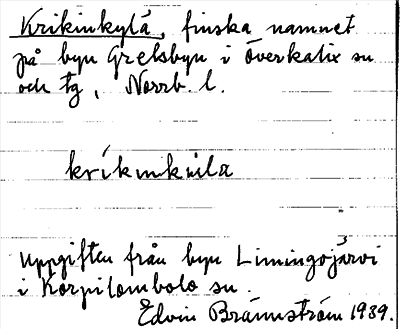 Krikinkylä, finska namnet
på byn Grelsbyn i Överkalix sn
och tg, Norrb. l.
kríkinkiila
Uppgiften från byn Limingojärvi
i Korpilombolo sn.
Edvin Brännström 1939.